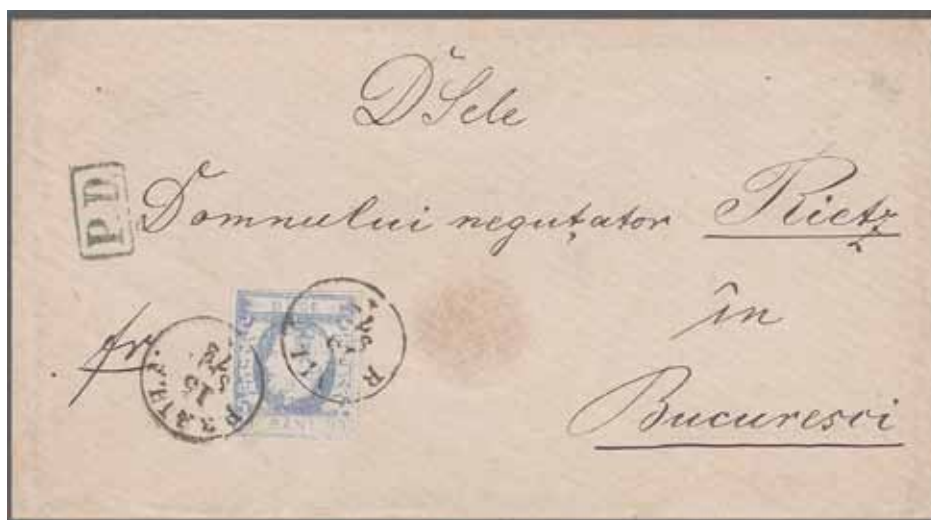 D Sele
P.D.
Domnului negutator Rietz
fr.
în
Bucuresci